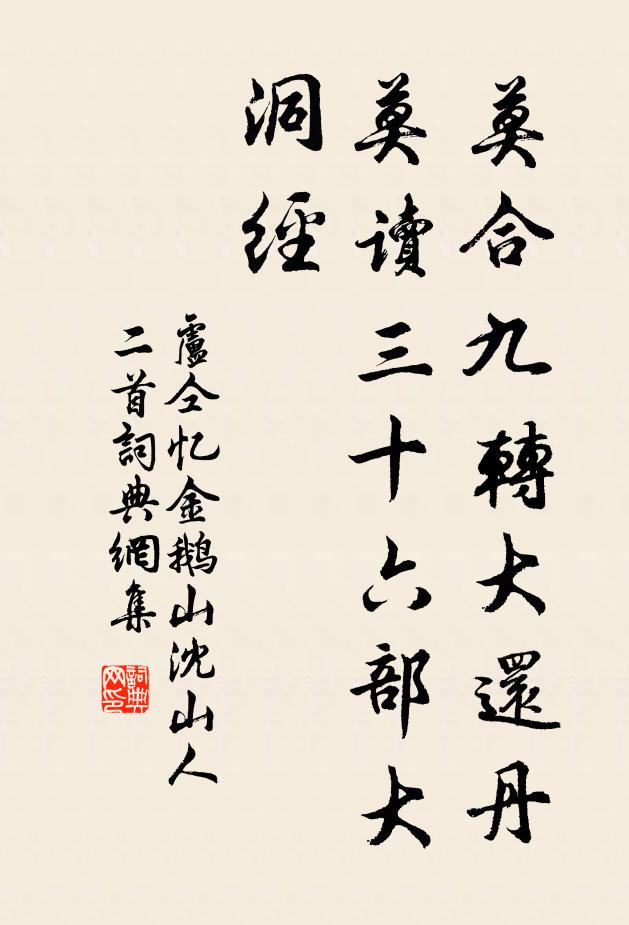 莫合九轉大還丹
莫讀三十六部大
洞經
盧仝忆金鹅山沈山人
二首詞典網集
詞典
网印